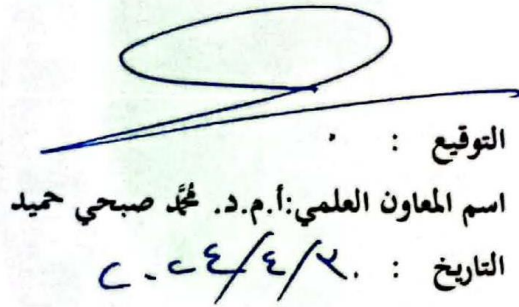 التوقيع :
اسم المعاون العلمي:أ.م.د. محمد صبحي حميد
التاريخ : ٢٠٢٤/٤/٣٠